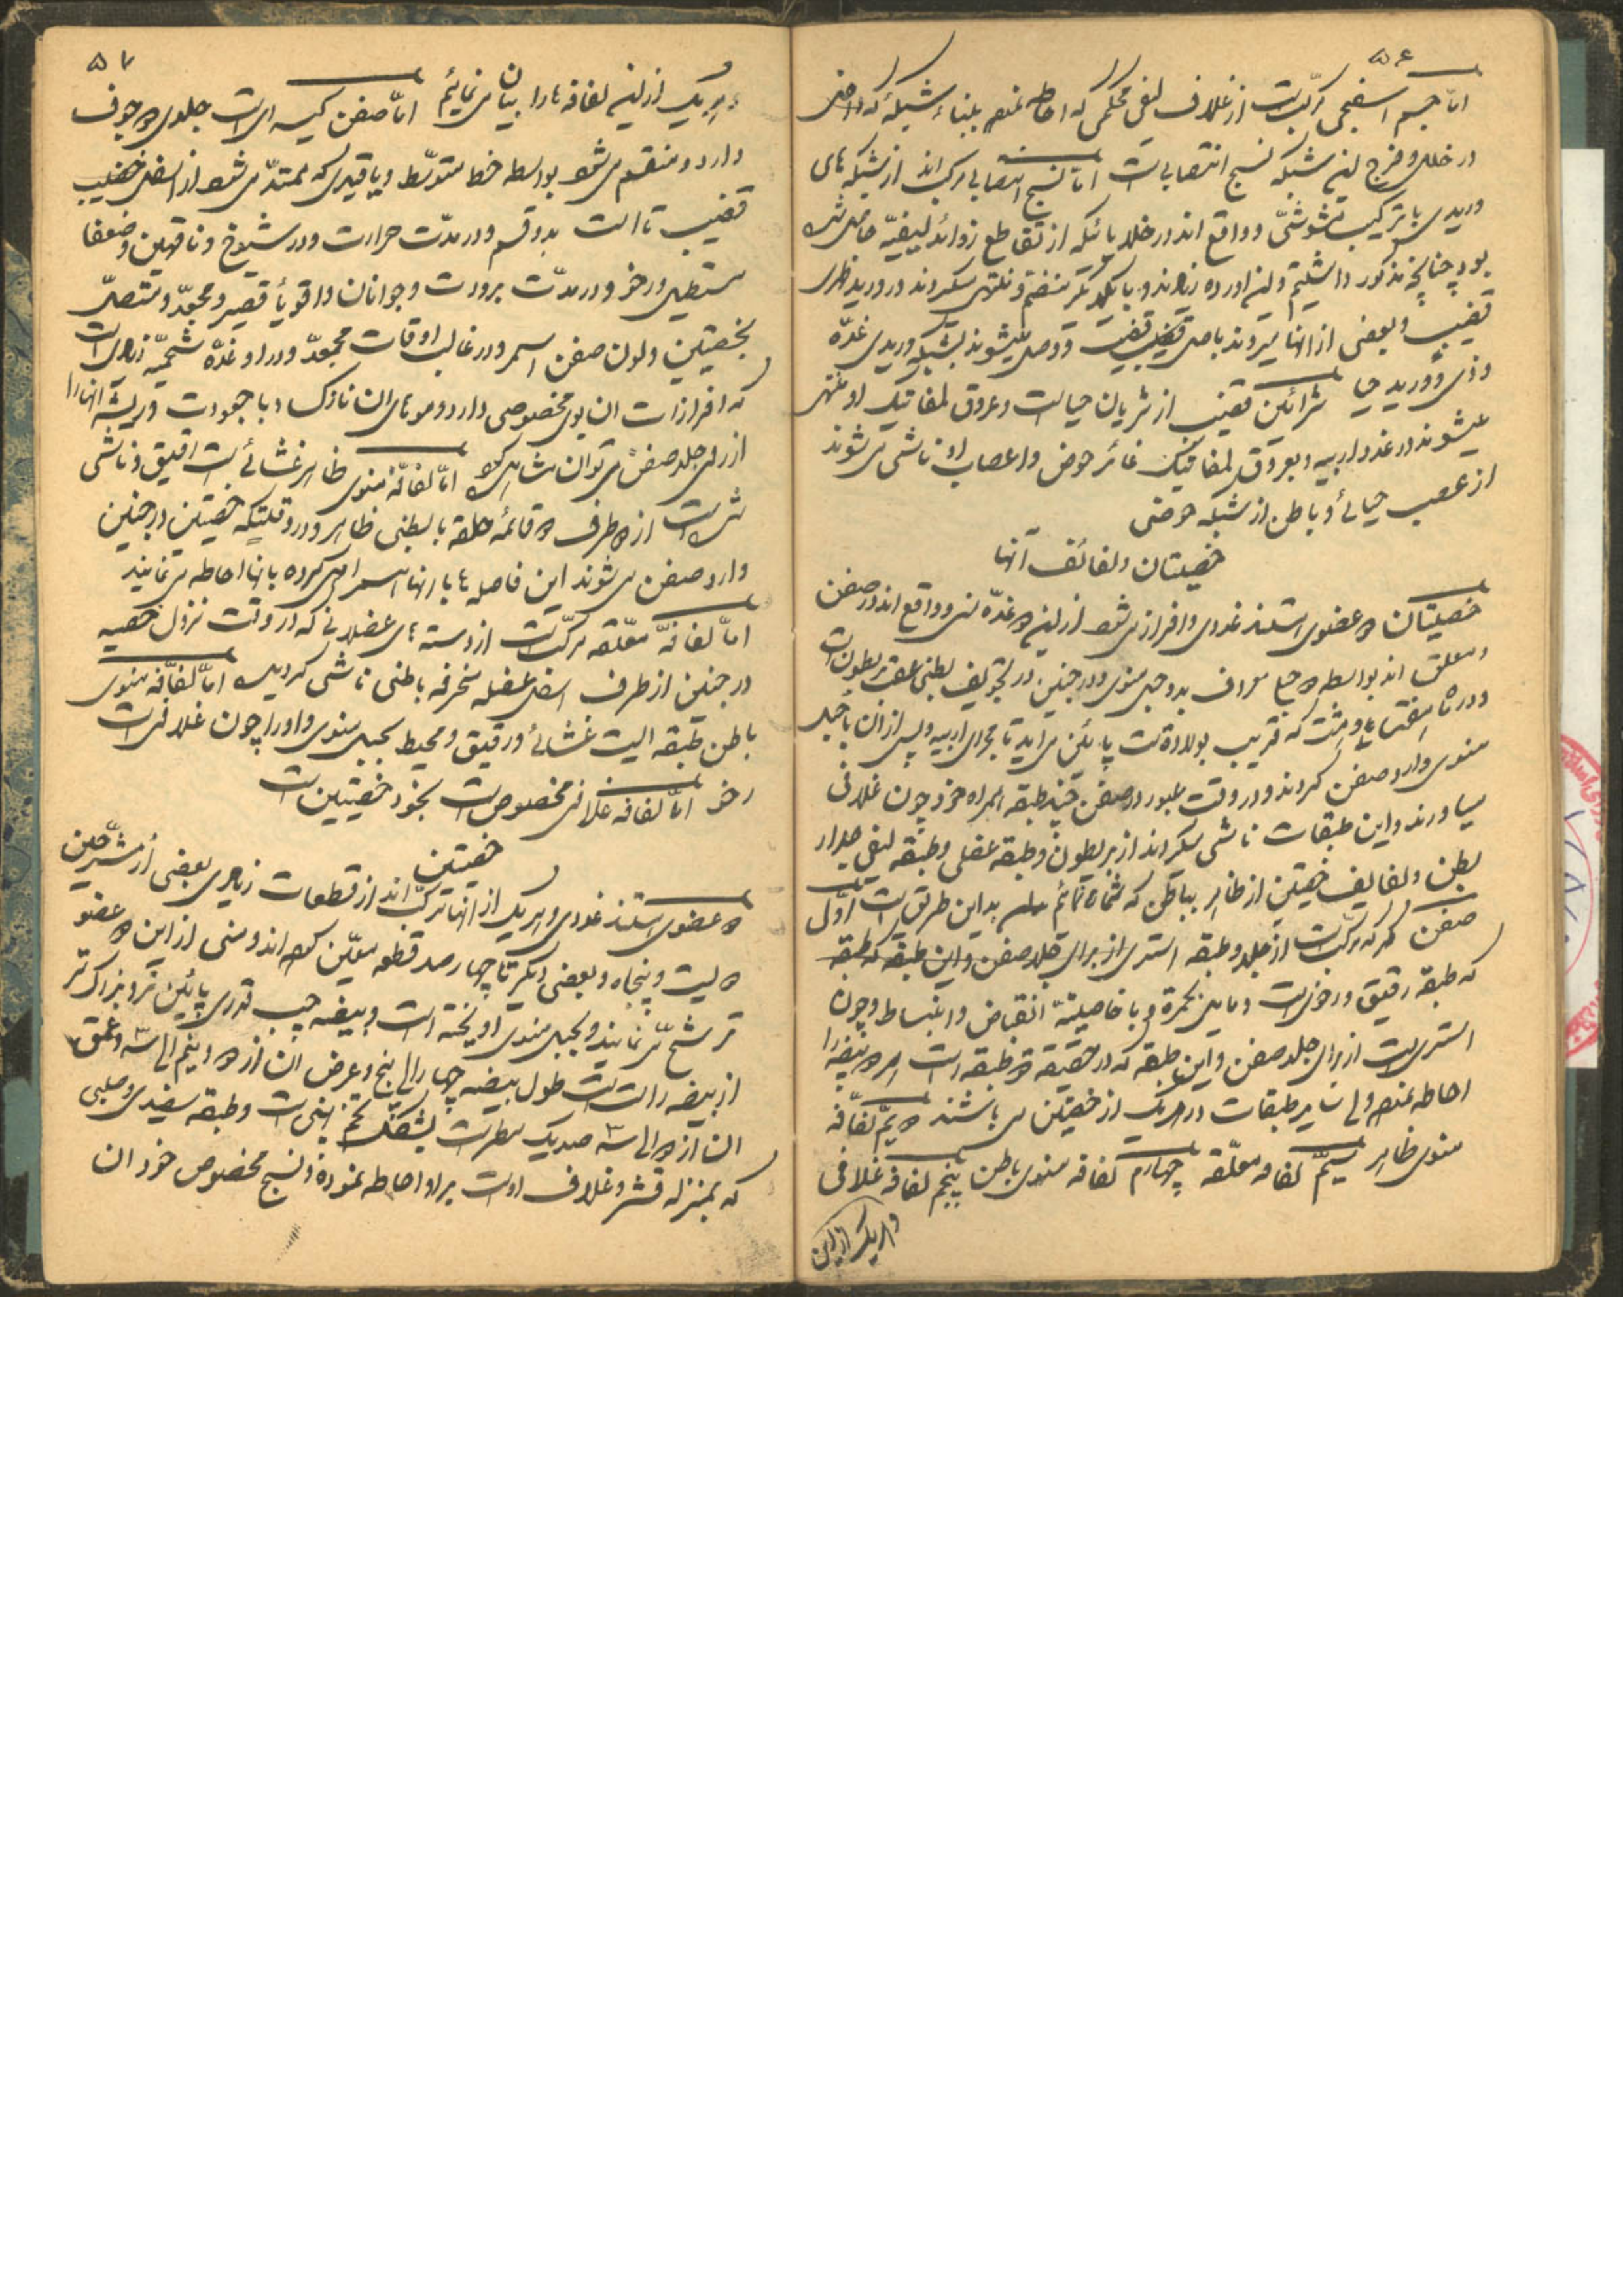 ۵۶
اما جسم اسفنجی مرکب است از غلاف لیفی محکمی که احاطه نموده بابناء شبکهٔ که داخل
در خلل و فرج این شبکه نسیج انتصابی است اما نسیج انتصابی مرکب اند از شبکه های
وریدی با ترکیب مشوشی و واقع اند در خلایائیکه از تقاطع زوائد لیفیه حاصل شده
بود چنانچه مذکور داشتیم و این اورده زیادند و با یکدیگر منضم و منتهی میگردند در ورید ظهری
قضیب و بعضی از انها میروند باصل قضیب و وصل میشوند بشبکه وریدی غدّه
وذی و ورید حیا شرائین قضیب از شریان حیا است و عروق لمفاتیک او منتهی
میشوند در غدد اربیه و بعروق لمفاتیک غائر حوض و اعصاب او ناشی می شوند
از عصب حیائی و باطن از شبکه حوضی
خصیتان و لفائف آنها
خصیتان دو عضوی استند غددی و افراز می شود از این دو غدّه منی و واقع اند در صفن
و معلق اند بواسطه دو حبل معروف بدو حبل منوی و در جنین در تجویف بطنی عقب بریطون است
و در ماه هفتم و هشت که قریب بولادت است پائین می اید تا مجرای اربیه و پس از ان با حبل
منوی وارد صفن گردند و در وقت عبور در صفن چند طبقه همراه خود چون غلافی
میاورند و این طبقات ناشی میگردند از بریطون و طبقه عضلی و طبقه لیفی جدار
بطن و لفایف خصیتین از ظاهر بباطن که شماره نمائیم بدین طریق است اوّل
صفن که مرکب است از جلد و طبقه استری از برای جلد صفن و این طبقه که طبقه
که طبقه رقیق و رخوی است و مایل بحمرة و با خاصیتهٔ انقباض و انبساط و چون
استری است از برای جلد صفن و این طبقه که در حقیقة دو طبقه است هر دو بیضه را
احاطه نموده ولی سایر طبقات در هر یک از خصیتین می باشند دویم لفافه
منوی ظاهر سیم لفافه معلّقه چهارم لفافه منوی باطن پنجم لفافه غلافی
و هریک از این
۵۷
و هریک از این لفافه ها را بیان می نمائیم اما صفن کیسه ای است جلدی دو جوف
دارد و منقسم می شود بواسطه خط متوسط و یا قیدی که ممتد می شود از اسفل قضیب
قضیب تا است بدو قسم و در مدّت حرارت و در شیوخ و ناقهین و ضعفا
مستطیل و رخو و در مدّت برودت و جوانان و اقویا قصیر و مجعّد و متصل
بخصیتین و لون صفن اسمر و در غالب اوقات مجعّد و در او غدّه شحمیّه زیاد است
که افرازات ان بوی مخصوصی دارد و موهای ان نازک و با جعودت و ریشه انها را
از روی جلد صفن می توان مشاهده کرد اما لفافه منوی ظاهر غشائی است رقیق و ناشی
شده است از دو طرف دو قائمهٔ حلقه بابطنی ظاهر و در وقتیکه خصیتین در جنین
وارد صفن می شوند این فاصله ها با انها همراهی کرده بانها احاطه می نمایند
اما لفافهٔ معلّقه مرکب است از دسته های عضلانی که در وقت نزول خصیه
در جنین از طرف اسفل عضله منحرفه باطنی ناشی گردیده اما لفافه منوی
باطن طبقه ایست غشائی و رقیق و محیط بحبل منوی و او را چون غلافی است
رخو اما لفافه غلافی مخصوص است بخود خصیتین است
خصیتین
دو عضوی استند غددی و هر یک از انها مرکب اند از قطعات زیادی بعضی از مشرّحین
دویست و پنجاه و بعضی دیگر تا چهار صد قطعه معیّن کرده اند و منی از این دو عضو
ترشح می نماید و بحبل منوی اویخته است و بیضه چپ قدری پائین تر و بزرگ تر
از بیضه راست است طول بیضه چهار الی پنج و عرض ان از دو و نیم الی سه و عمق
ان از دو الی سه صد یک مطر است بشکل تخم است و طبقه سفیدی و صلبی
که بمنزله قشر و غلاف اوست بر او احاطه نموده و نسیج مخصوص خود ان